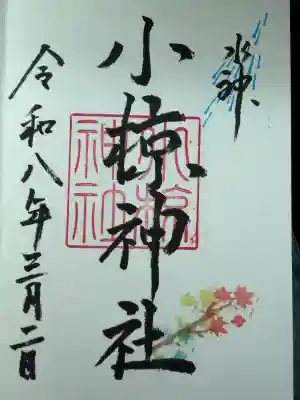 水神
小椋神社
令和八年三月二日
小椋神社